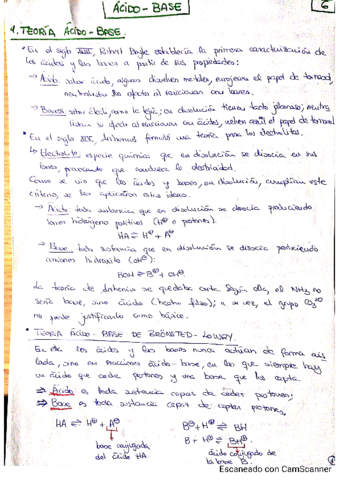 ÁCIDO - BASE
6
1. TEORÍA ÁCIDO - BASE.
• En el siglo XVII, Robert Boyle establecía la primera caracterización de
los ácidos y las bases a partir de sus propiedades:
→ Ácido: sabor ácido, algunos disuelven metales, enrojecen el papel de tornasol,
neutralizan su efecto al reaccionar con bases.
→ Bases: sabor, como la lejía; en disolución tienen tacto jabonoso; neutra
lizan su efecto al reaccionar con ácidos, vuelven azul el papel de tornasol
• En el siglo XIX, Arrhenius formuló una teoría para los electrolitos.
↳ Electrolito: especie química que en disolución se disocia en sus
iones, provocando que conduzca la electricidad.
Como se vio que los ácidos y bases, en disolución, cumplían este
criterio, se les aplicaron estas ideas.
→ Ácido: toda sustancia que en disolución se disocia produciendo
iones hidrógeno positivos (H⊕ o protones).
HA ⇌ H⊕ + A⊖
→ Base: toda sustancia que en disolución se disocia produciendo
aniones hidroxilo (OH⊖):
BOH ⇌ B⊕ + OH⊖.
La teoría de Arrhenius se quedaba corta. Según ella, el NH3 no
sería base, sino ácido (hecho falso); a su vez, el grupo CO3 2⊖
no puede justificarlo como básico.
• TEORÍA ÁCIDO - BASE DE BRÖNSTED - LOWRY.
En ella los ácidos y las bases nunca actúan de forma ais
lada, sino en reacciones ácido-base, en las que siempre hay
un ácido que cede protones y una base que los capta.
⇒ Ácido es toda sustancia capaz de ceder protones;
⇒ Base es toda sustancia capaz de captar protones.
HA ⇌ H⊕ + A⊖
B⊖ + H⊕ ⇌ BH
B + H⊕ ⇌ BH⊕
base conjugada
del ácido HA
ácido conjugado de
la base B.
Escaneado con CamScanner